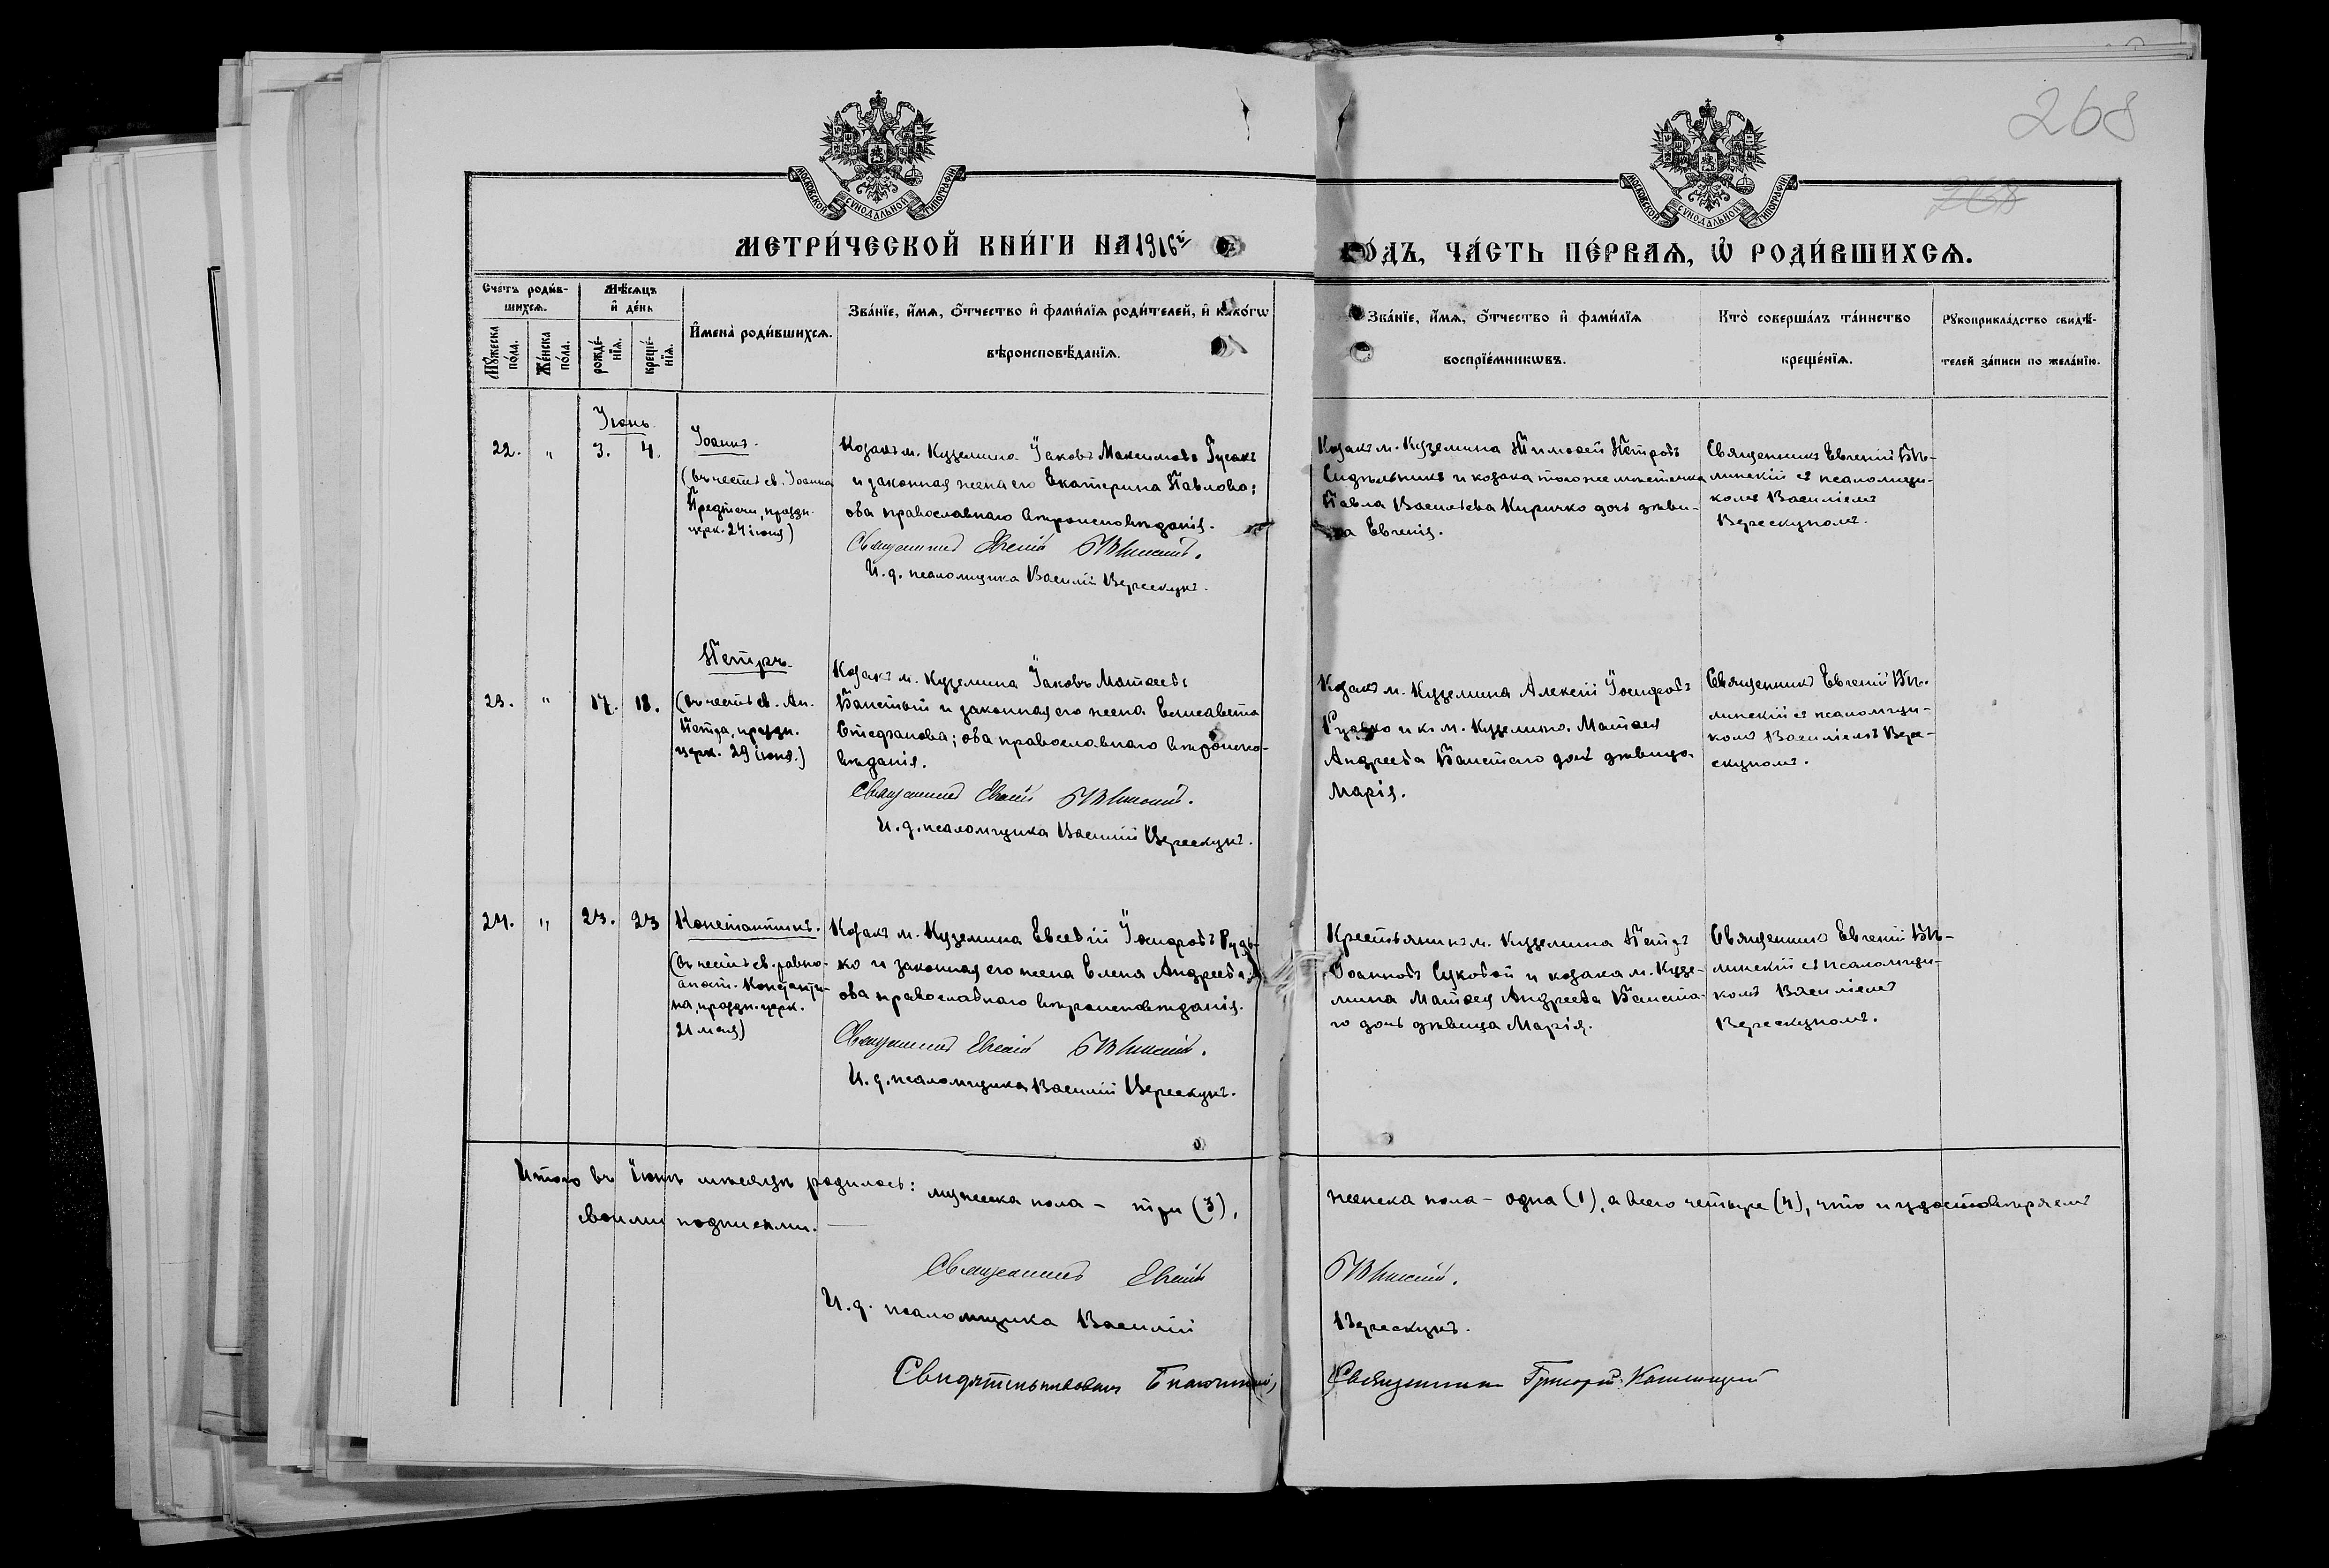 268
МОСКОВСКОЙ СѴНОДАЛЬНОЙ ТИПОГРАФІИ
МОСКОВСКОЙ СѴНОДАЛЬНОЙ ТИПОГРАФІИ
МЕТРИ́ЧЕСКОЙ КНИ́ГИ НА 1916й
ГО́ДЪ, ЧА́СТЬ ПЕ́РВАѦ, Ѡ҆ РОДИ́ВШИХСѦ.
Сче́тъ роди́в-
шихсѧ.
Мꙋ́жеска по́ла.
Же́нска по́ла.
Мѣ́сѧцъ
и҆ де́нь
рожде́-
нїѧ.
креще́-
нїѧ.
И҆мена̀ роди́вшихсѧ.
Зва́нїе, и҆́мѧ, ѻ҆́тчество и҆ фами́лїѧ роди́телей, и҆ како́гѡ
вѣроисповѣ́данїѧ.
Зва́нїе, и҆́мѧ, ѻ҆́тчество и҆ фами́лїѧ
воспрїе́мникѡвъ.
Кто̀ соверша́лъ та́инство
креще́нїѧ.
Рꙋкоприкла́дство свидѣ́-
телей за́писи по жела́нїю.
Іюнь
22. " 3. 4.
Іоаннъ.
(въ честь св. Іоанна
Предтечи, праздн.
церк. 24 іюня)
Козакъ м. Куземина Іаковъ Максимовъ Гусакъ
и законная жена его Екатерина Павлова;
оба православнаго вѣроисповѣданія.
Священникъ Евгеній Бѣлинскій.
И. д. псаломщика Василій Верескунъ.
Козакъ м. Куземина Тимоѳей Петровъ
Сидѣльникъ и козака того же мѣстечка
Павла Васильева Киричко дочь дѣви-
ца Евгенія.
Священникъ Евгеній Бѣ-
линскій съ псаломщи-
комъ Василіемъ
Верескуномъ.
23. " 17. 18.
Петръ.
(въ честь св. Ап.
Петра, праздн.
церк. 29 іюня.)
Козакъ м. Куземина Іаковъ Матѳеевъ
Бѣистый и законная его жена Елисавета
Стефанова; оба православнаго вѣроиспо-
вѣданія.
Священникъ Евгеній Бѣлинскій.
И. д. псаломщика Василій Верескунъ.
Козакъ м. Куземина Алексій Іосифовъ
Рудько и к. м. Куземина Матѳея
Андреева дочь дѣвица
Марія.
Священникъ Евгеній Бѣ-
линскій съ псаломщи-
комъ Василіемъ Вере-
скуномъ.
24. " 23. 23
Константинъ.
(въ честь св. равно-
апост. Константи-
на, праздн. церк.
21 мая)
Козакъ м. Куземина Евсевій Іосифовъ Рудь-
ко и законная его жена Елена Андреева;
оба православнаго вѣроисповѣданія.
Священникъ Евгеній Бѣлинскій.
И. д. псаломщика Василій Верескунъ.
Крестьянинъ м. Куземина Петръ
Іоанновъ Суковой и козака м. Кузе-
мина Матѳея Андреева
го дочь дѣвица Марія.
Священникъ Евгеній Бѣ-
линскій съ псаломщи-
комъ Василіемъ
Верескуномъ.
Итого въ Іюнѣ мѣсяцѣ родилось: мужеска пола – три (3), женска пола – одна (1), а всего четыре (4), что и удостовѣряемъ
своими подписями.
Священникъ Евгеній Бѣлинскій.
И. д. псаломщика Василій Верескунъ.
Свидѣтельствовалъ Благочинный, Священникъ Григорій